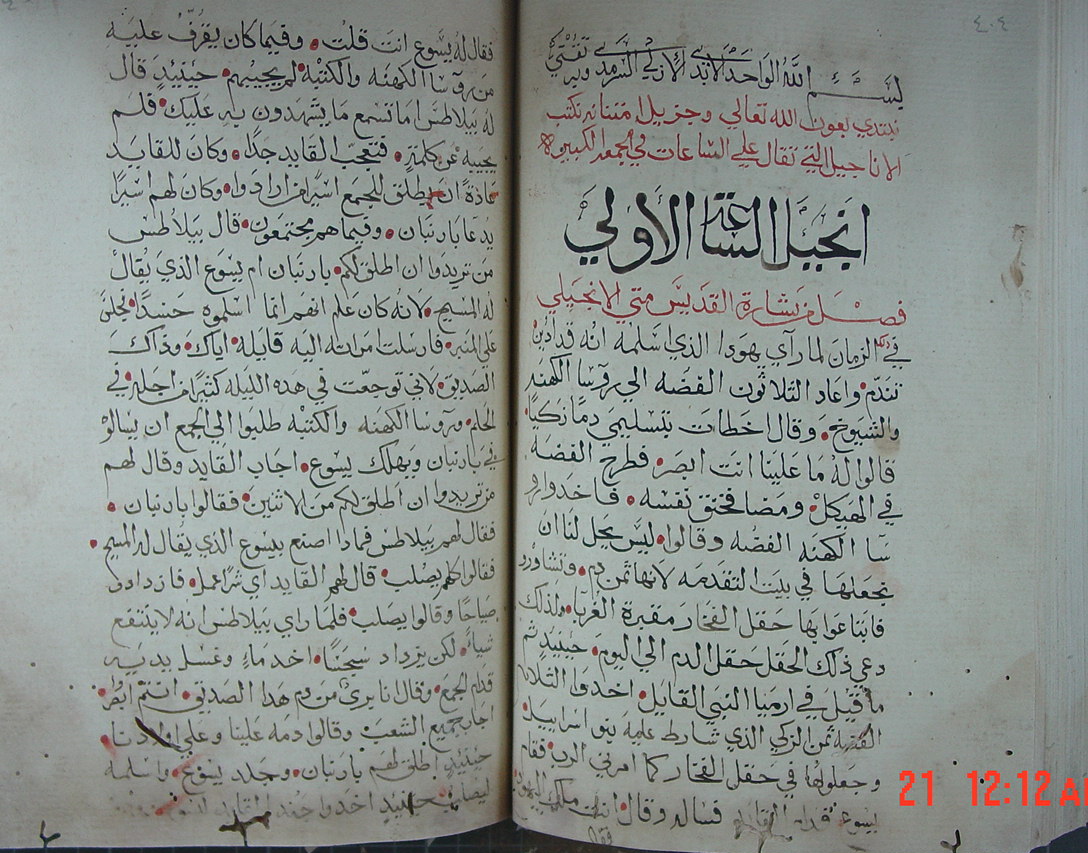 ٤٠٤
بسم الله الواحد الابدي الازلي السرمدي وبه تقتي
نبتدي بعون الله تعالي وجزيل امتنانه نكتب
الاناجيل التي تقال علي الساعات في الجمعه الكبيره
انجيل الساعة الاولي
فصل من بشارة القديس متي الانجيلي
في ذلك الزمان لما راي يهودا الذي اسلمه انه قد ادين
تندم واعاد التلاتون الفضه الي روسا الكهنه
والشيوخ وقال اخطات بتسليمي دما زكيا
قالوا له ما علينا انت ابصر فطرح الفضه
في الهيكل ومضا فخنق نفسه فاخدوا رو
سا الكهنه الفضه وقالوا ليس يحل لنا ان
نجعلها في بيت التقدمه لانها تمن دم وتشاورو
فابتاعوا بها حقل الفخار مقبرة الغربا ولذلك
دعي ذلك الحقل حقل الدم الي اليوم حينيد تم
ما قيل في ارميا النبي القايل اخدوا التلاتين
الفضه تمن الزكي الذي شارط عليه بنو اسراييل
وجعلوها في حقل الفخار كما امرني الرب فقام
يسوع قدام القايد فساله وقال انت ملك اليهود
فقا
فقال له يسوع انت قلت وفيما كان يقرف عليه
من روسا الكهنه والكتبه لم يجيبهم حينيد قال
له بيلاطس اما تسمع ما يشهدون به عليك فلم
يجيبه عن كلمته فتعجب القايد جدا وكان للقايد
عادة ان يطلق للجمع اسيرا من ارادوا وكان لهم اسيرا
يدعا بارنبان وفيما هم مجتمعون قال بيلاطس
من تريدوا ان اطلق لكم بارنبان ام يسوع الذي يقال
له المسيح لانه كان علم انهم انما اسلموه حسدا فجلس
علي المنبر فارسلت مراته اليه قايله اياك وذاك
الصديق لاني توجعت في هده الليله كتيرا من اجله في
الحلم وروسا الكهنه والكتبه طلبوا الي الجمع ان يسالوا
في بارنبان ويهلك يسوع اجاب القايد وقال لهم
من تريدوا ان اطلق لكم من الاتنين فقالوا بارنبان
فقال لهم بيلاطس فماذا اصنع بيسوع الذي يقال له المسيح
فقالوا كلهم يصلب قال لهم القايد اي شرا عمل فازدادو
صياحا وقالوا يصلب فلما راي بيلاطس انه لا ينتفع
شياء لكن يزداد سجسا اخد ماء وغسل يديه
قدام الجمع وقال انا بري من دم هدا الصديق انتم ابصروا
اجاب جميع الشعب وقالوا دمه علينا وعلي اولادنا
حينيد اطلق لهم بارنبان وجلد يسوع واسلمه
ليصلب حينيد اخدوا جند القايد
21 12:12 A